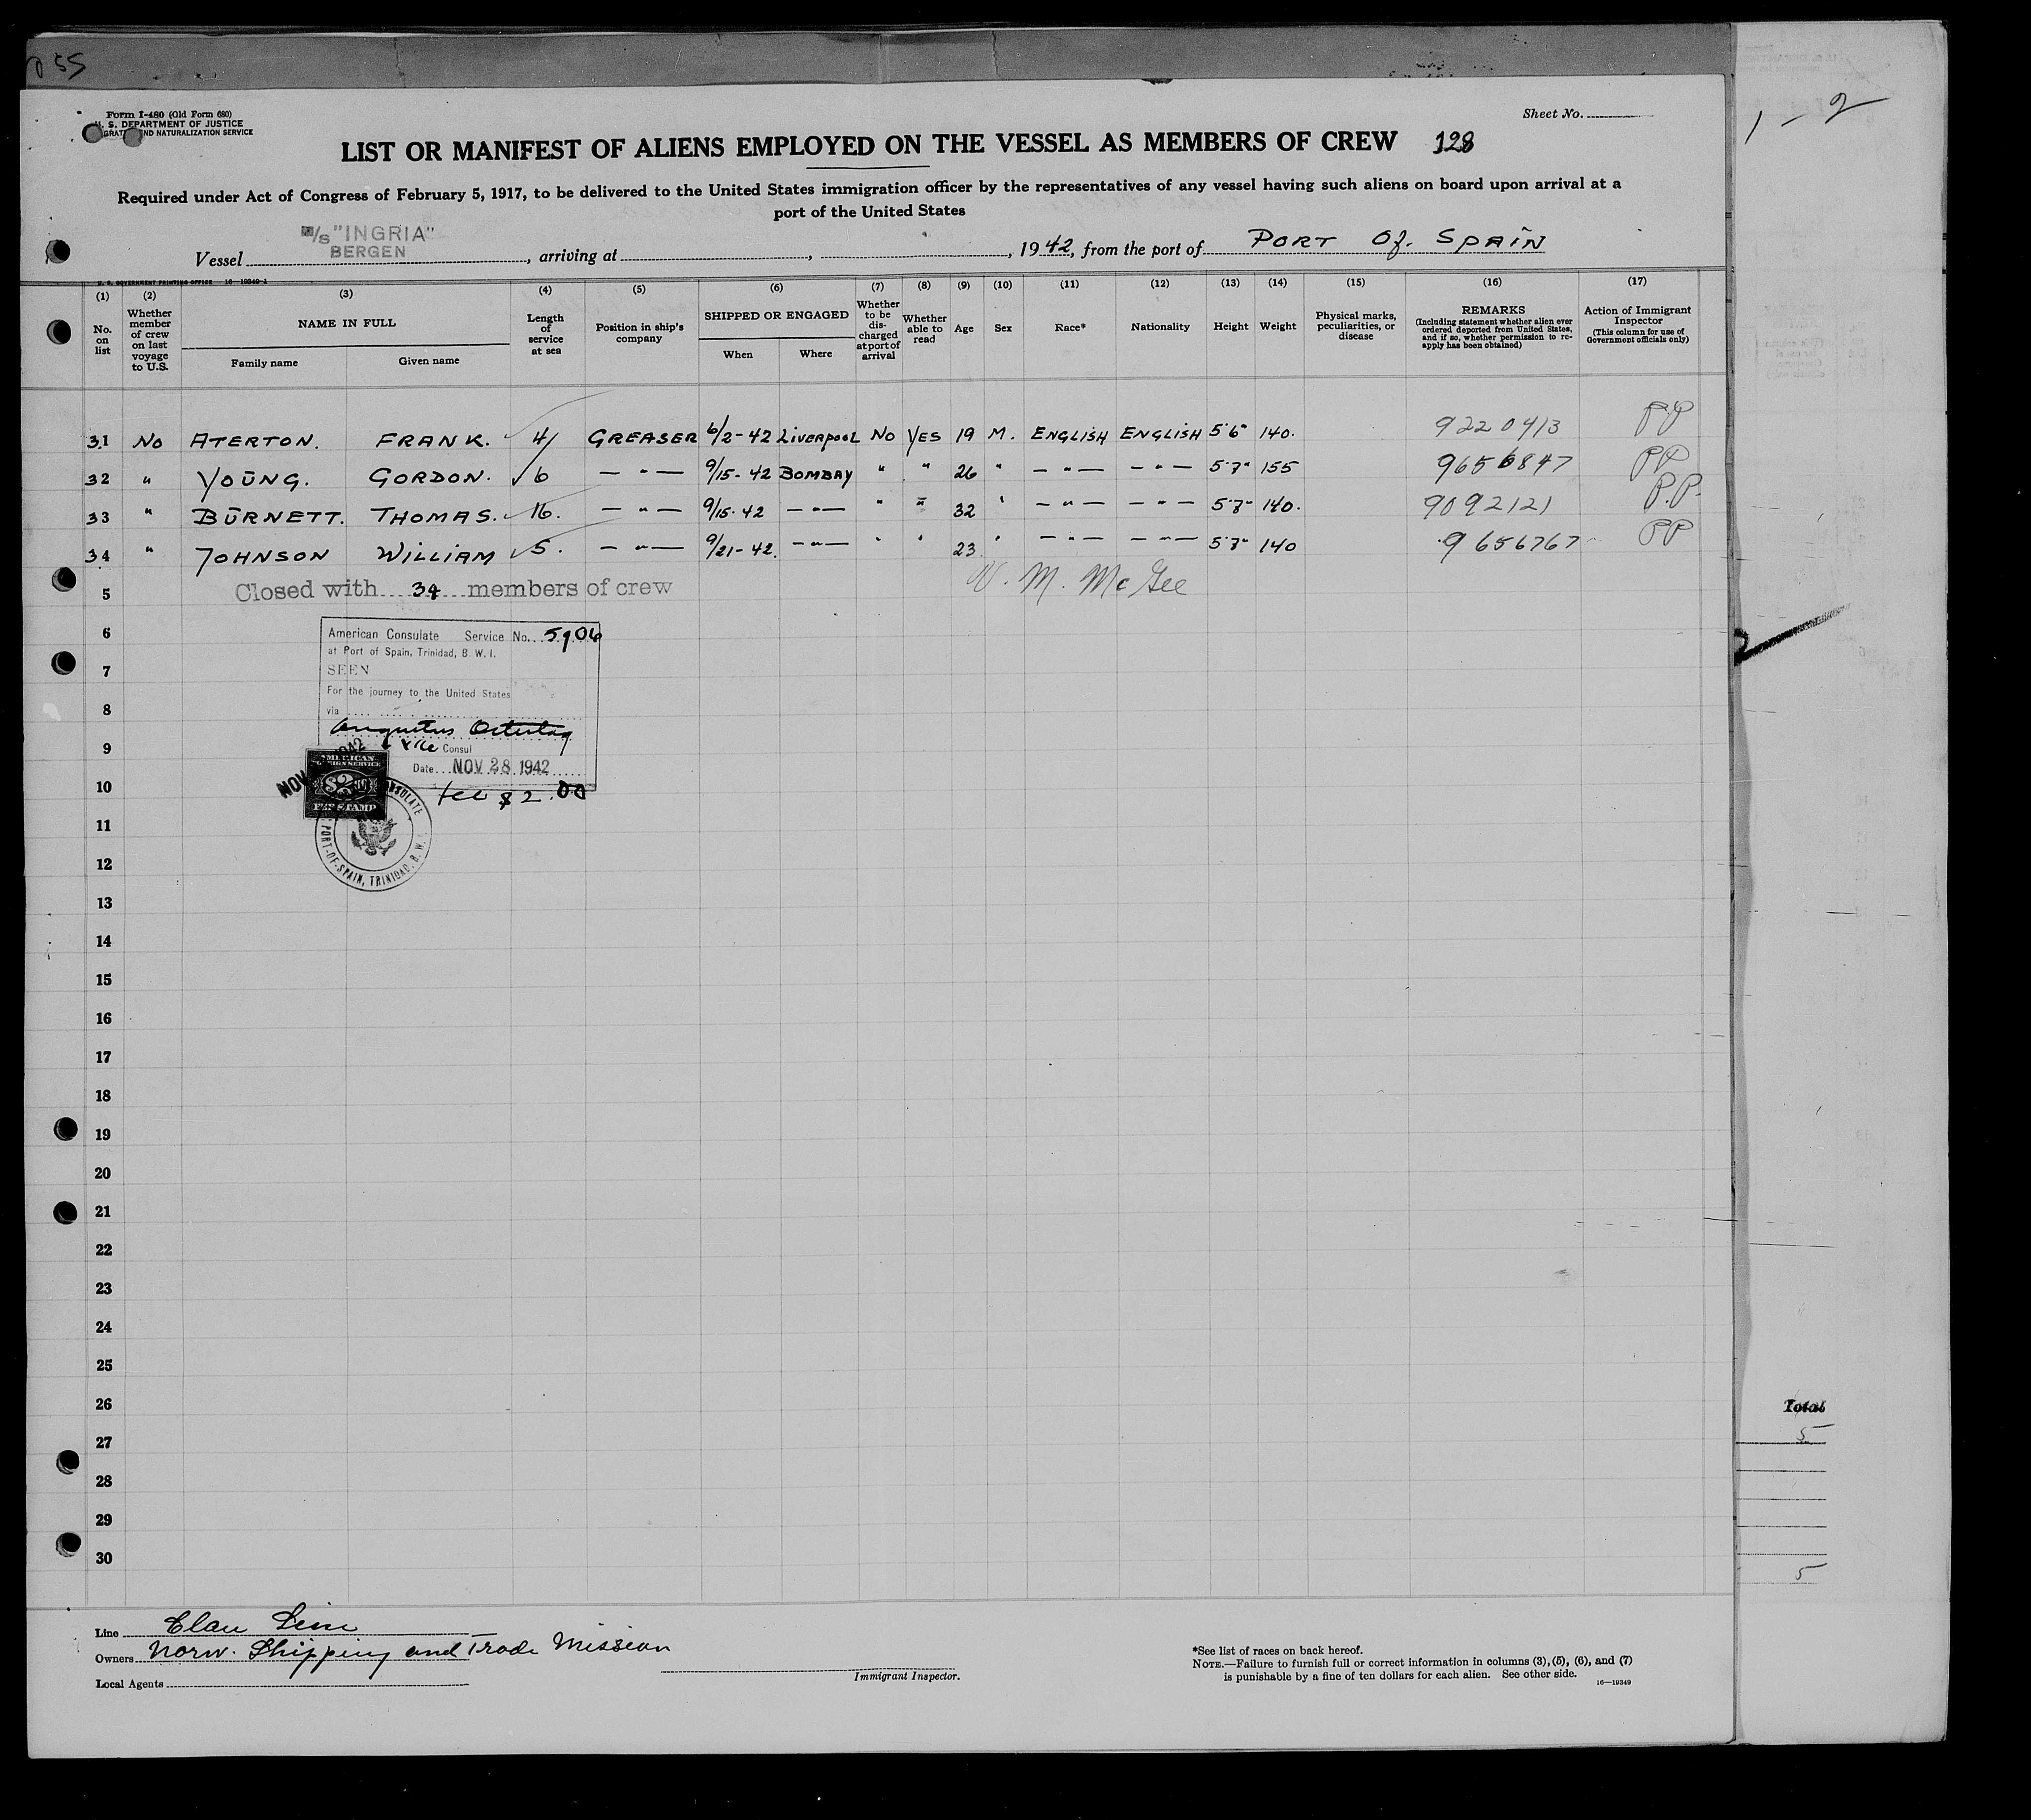 55
1 - 2
Form I-480 (Old Form 680)
U. S. DEPARTMENT OF JUSTICE
IGRATION AND NATURALIZATION SERVICE
Sheet No.
LIST OR MANIFEST OF ALIENS EMPLOYED ON THE VESSEL AS MEMBERS OF CREW 128
Required under Act of Congress of February 5, 1917, to be delivered to the United States immigration officer by the representatives of any vessel having such aliens on board upon arrival at a
port of the United States
Vessel M/S "INGRIA" BERGEN, arriving at , , 1942, from the port of PORT Of. SPAIN
U. S. GOVERNMENT PRINTING OFFICE 16—19349-1
(1) No. on list
(2) Whether member of crew on last voyage to U.S.
(3) NAME IN FULL Family name Given name
(4) Length of service at sea
(5) Position in ship's company
(6) SHIPPED OR ENGAGED When Where
(7) Whether to be discharged at port of arrival
(8) Whether able to read
(9) Age
(10) Sex
(11) Race*
(12) Nationality
(13) Height
(14) Weight
(15) Physical marks, peculiarities, or disease
(16) REMARKS (Including statement whether alien ever ordered deported from United States, and if so, whether permission to reapply has been obtained)
(17) Action of Immigrant Inspector (This column for use of Government officials only)
31 No ATERTON. FRANK. 4 GREASER 6/2-42 LIVERPOOL No YES 19 M. ENGLISH ENGLISH 5'6" 140. 9220413 PP
32 " YOUNG. GORDON. 6 — " — 9/15-42 BOMBAY " " 26 " — " — — " — 5'7" 155 9656847 PP
33 " BURNETT. THOMAS. 16. — " — 9/15-42 — " — " " 32 " — " — — " — 5'7" 140. 9092121 P.P.
34 " JOHNSON WILLIAM 5. — " — 9/21-42. — " — " " 23 " — " — — " — 5'7" 140 9656767 PP
5 Closed with 34 members of crew
M. McGee
6
7
8
9
10
11
12
13
14
15
16
17
18
19
20
21
22
23
24
25
26
27
28
29
30
American Consulate Service No. 5906
at Port of Spain, Trinidad, B. W. I.
SEEN
For the journey to the United States
via
Augustus Ostertag
Vice Consul
Date NOV 28 1942
fee $2.00
AMERICAN FOREIGN SERVICE
$2
FEE STAMP
PORT-OF-SPAIN, TRINIDAD, B. W. I.
Total
5
5
Line Clan Line
Owners Norw. Shipping and Trade Mission
Local Agents
Immigrant Inspector.
*See list of races on back hereof.
NOTE.—Failure to furnish full or correct information in columns (3), (5), (6), and (7)
is punishable by a fine of ten dollars for each alien. See other side.
16—19349